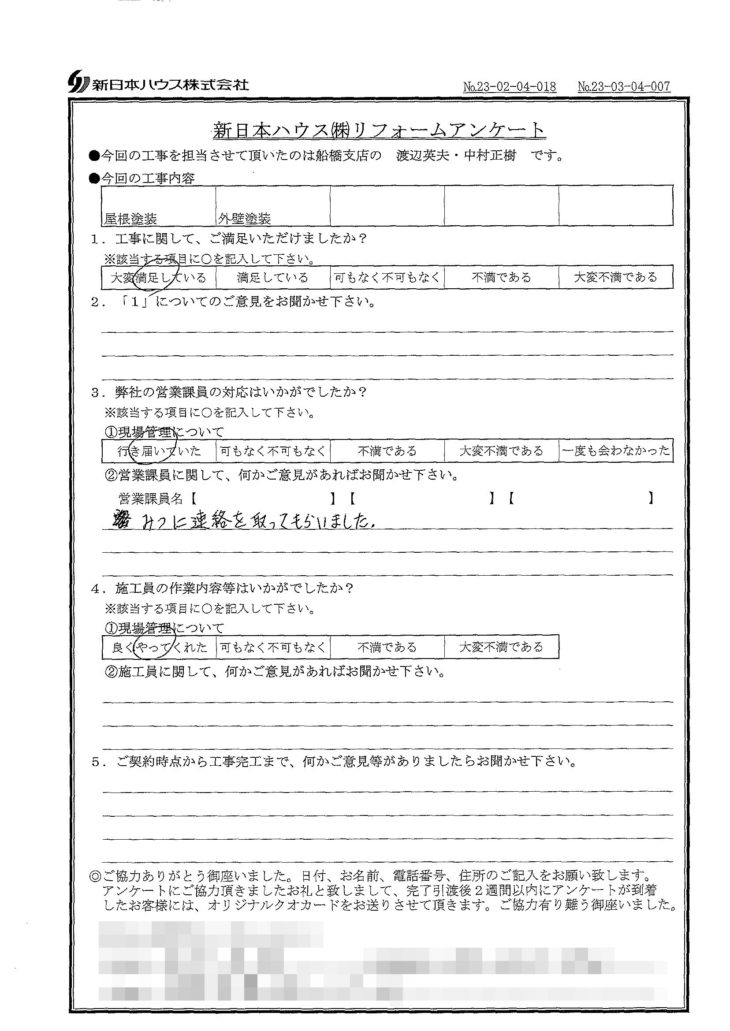 新日本ハウス株式会社
№23-02-04-018 №23-03-04-007
新日本ハウス㈱リフォームアンケート
●今回の工事を担当させて頂いたのは船橋支店の 渡辺英夫・中村正樹 です。
●今回の工事内容
屋根塗装 外壁塗装
１．工事に関して、ご満足いただけましたか？
※該当する項目に○を記入して下さい。
大変満足している 満足している 可もなく不可もなく 不満である 大変不満である
２．「１」についてのご意見をお聞かせ下さい。
３．弊社の営業課員の対応はいかがでしたか？
※該当する項目に○を記入して下さい。
①現場管理について
行き届いていた 可もなく不可もなく 不満である 大変不満である 一度も会わなかった
②営業課員に関して、何かご意見があればお聞かせ下さい。
営業課員名【 】【 】【 】
みつに連絡を取ってもらいました.
４．施工員の作業内容等はいかがでしたか？
※該当する項目に○を記入して下さい。
①現場管理について
良くやってくれた 可もなく不可もなく 不満である 大変不満である
②施工員に関して、何かご意見があればお聞かせ下さい。
５．ご契約時点から工事完工まで、何かご意見等がありましたらお聞かせ下さい。
◎ご協力ありがとう御座いました。日付、お名前、電話番号、住所のご記入をお願い致します。
アンケートにご協力頂きましたお礼と致しまして、完了引渡後２週間以内にアンケートが到着
したお客様には、オリジナルクオカードをお送りさせて頂きます。ご協力有り難う御座いました。